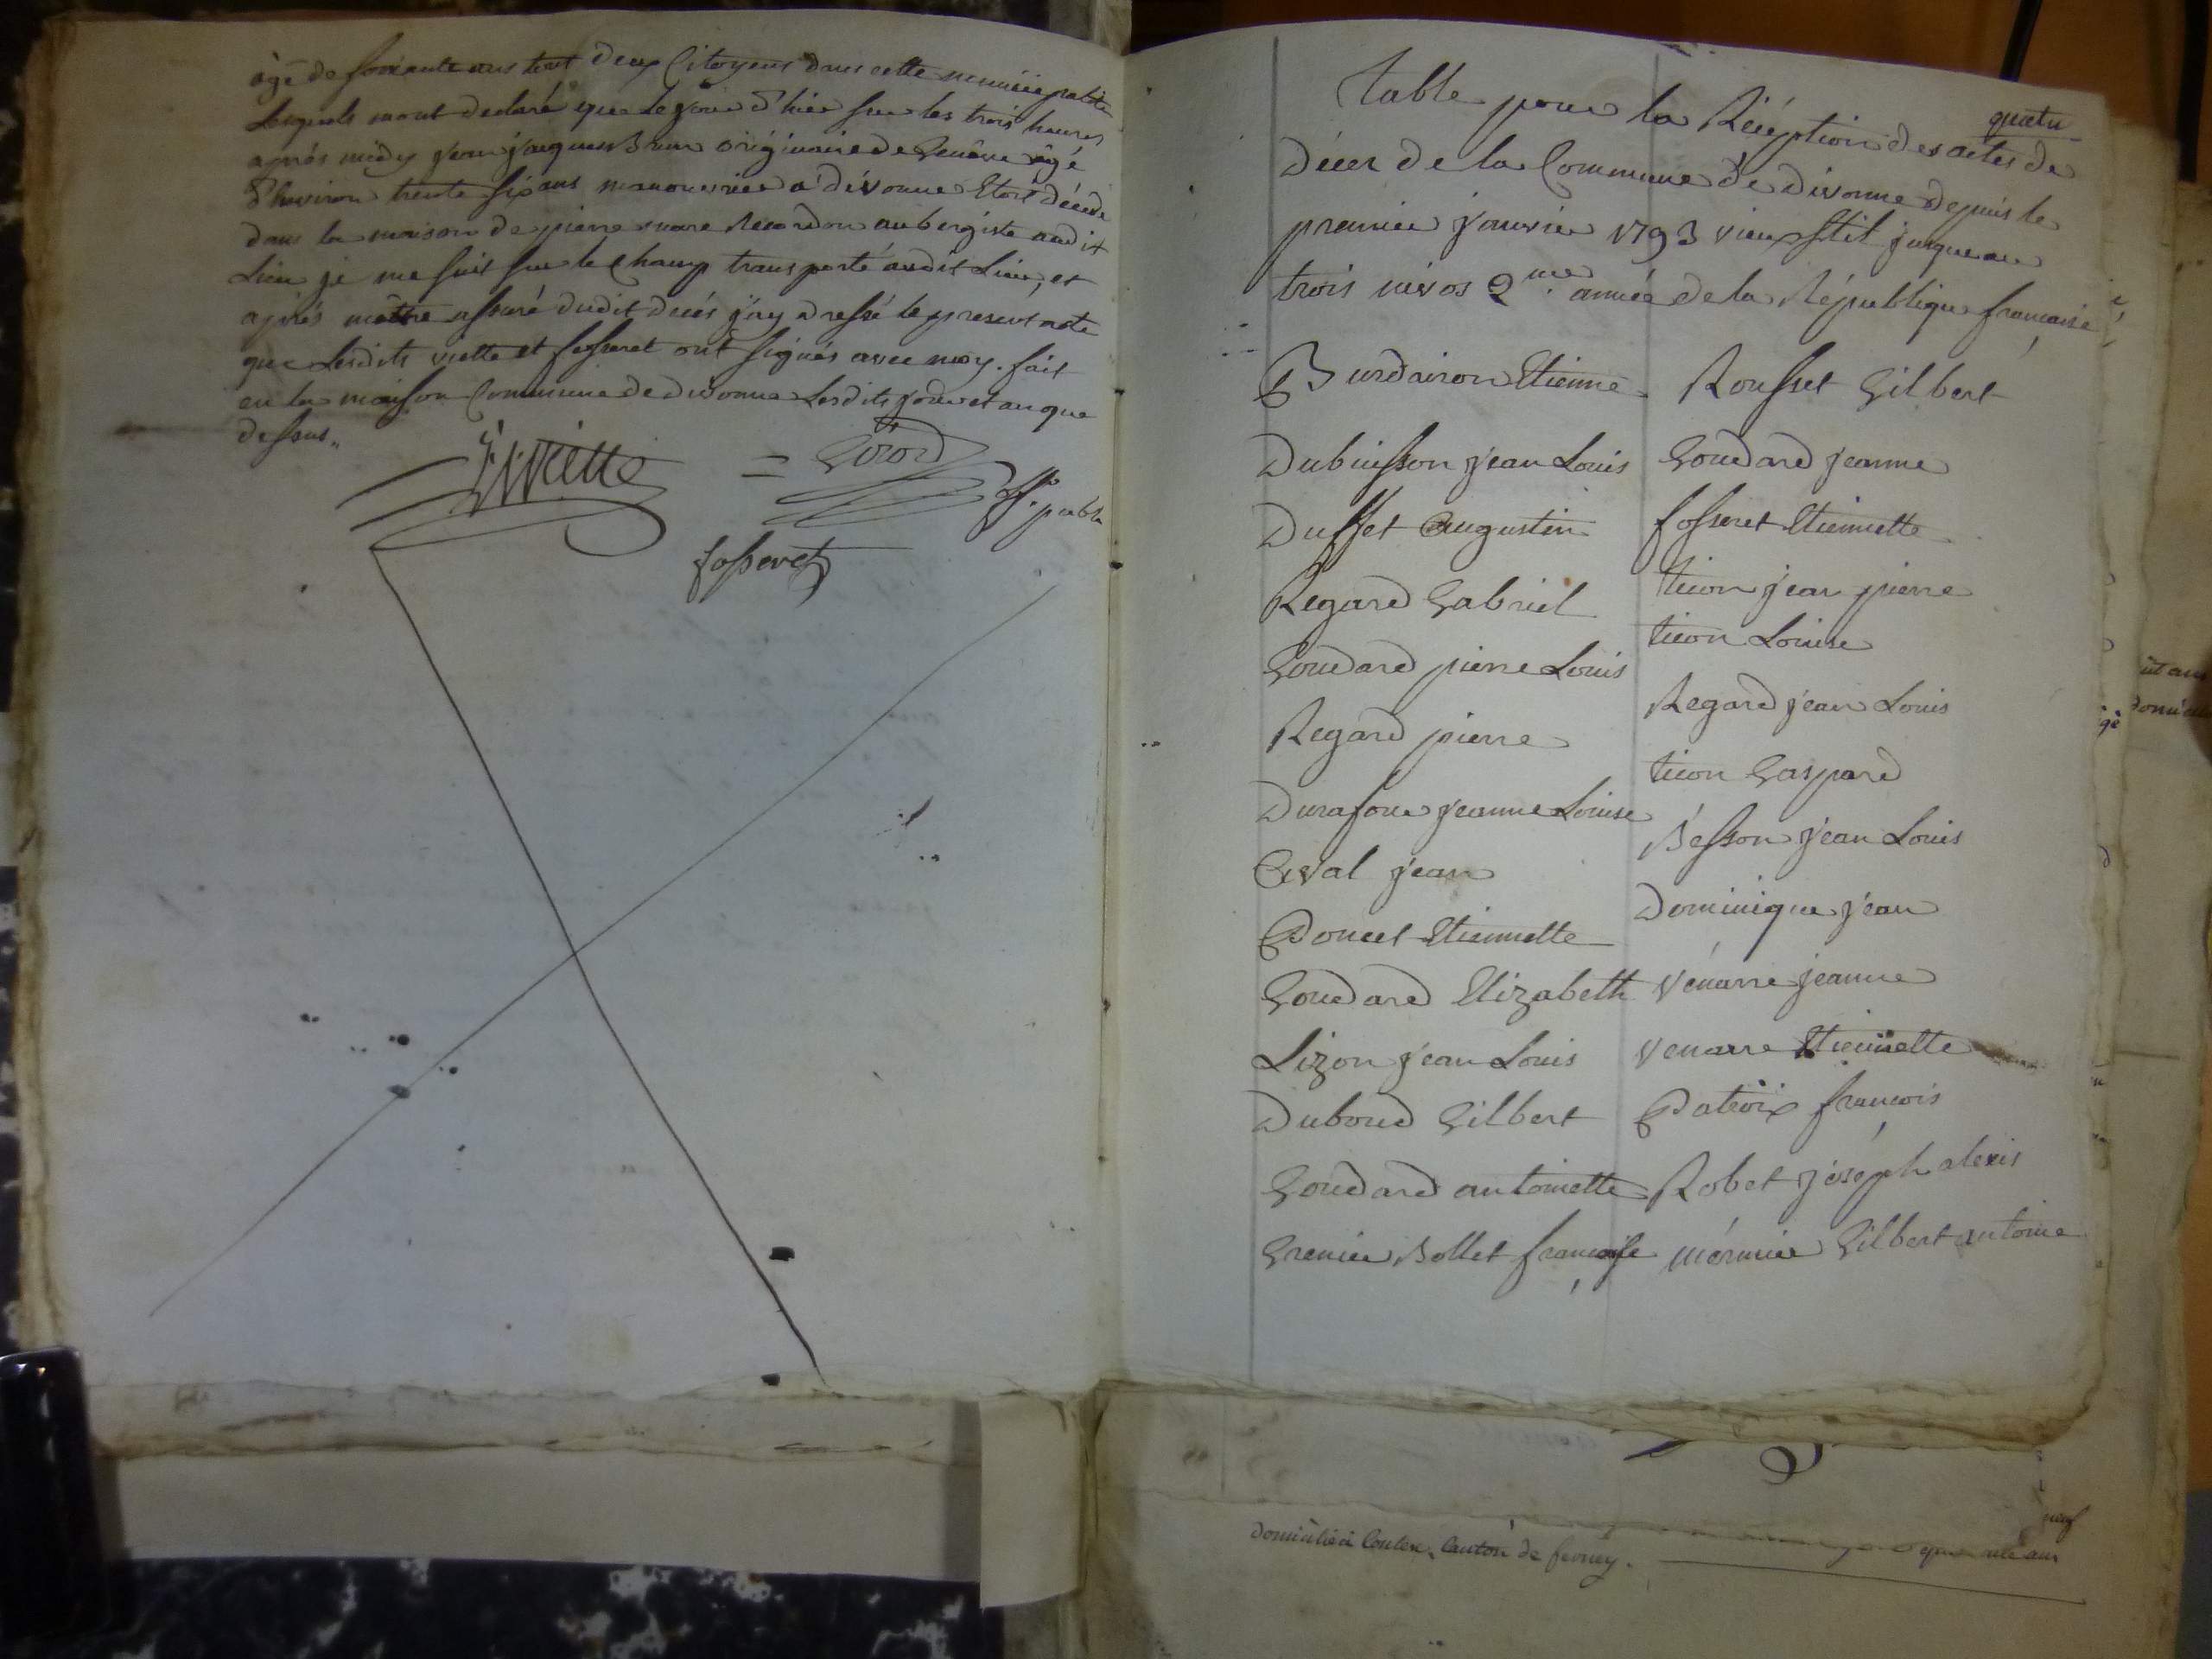 âgé de soixante ans tout deux Citoyens dans cette municipalité
Lesquels mont declaré que le jour d'hier sur les trois heures
aprés midy jean jaques Brun originaire de Genève âgé
d'environ trente six ans manouvrier a divonne Etoit décédé
dans la maison de pierre marc Recordon aubergiste audit
Lieu je me suis sur le Champ transporté audit Lieu, et
aprés mêttre assuré dudit decés j'ay dressé le present acte
que Lesdits viette et fosseret ont signés avec moy. fait
en la maison Commune de divonne Lesdits jour et an que
dessus.,
Viette = Girod
off. publ.
fosseret
quatre
Table pour la Réception des actes de
Décer de la Commune de divonne depuis le
premier janvier 1793 vieux Stil jusqueau
trois nivos 2me. année de la République francaise
Burdairon Etienne
Dubuisson jean Louis
Duffet augustin
Regard Gabriel
Goudard pierre Louis
Regard pierre
Durafour jeanne Louise
Arval jean
Poncet Etiennette
Goudard Elizabeth
Lizon jean Louis
Duboud Gilbert
Goudard antoinette
Grenier Bollet françoise
Rousset Gilbert
Goudard jeanne
fosseret Etiennette
ticon jean pierre
ticon Louise
Regard jean Louis
ticon Gaspard
Besson jean Louis
Dominique jean
Vénarre jeanne
Venarre Etiennette
Pateix francois
Robet joséph alexis
mérmier Gilbert antoine
Domicilié à Canton de ferney.